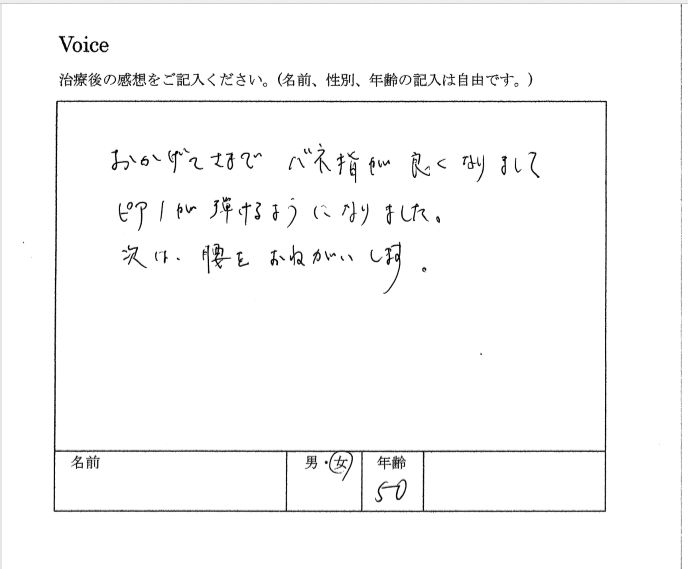 Voice
治療後の感想をご記入ください。(名前、性別、年齢の記入は自由です。)
おかげてさまで バネ指が 良くなりまして
ピアノが弾けるようになりました。
次は、腰をおねがいします。
名前 男・女 年齢
50